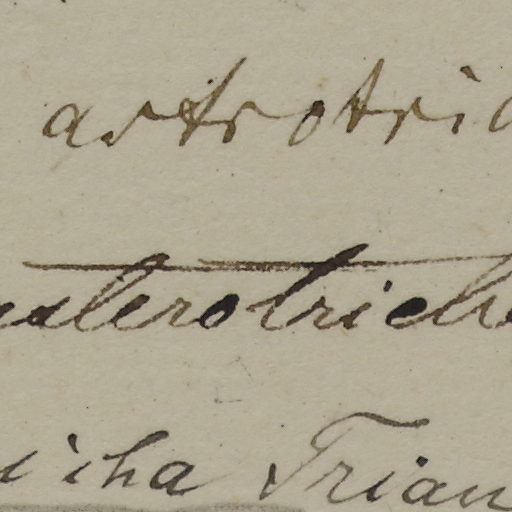 astrotric
asterotriche
icha Trian